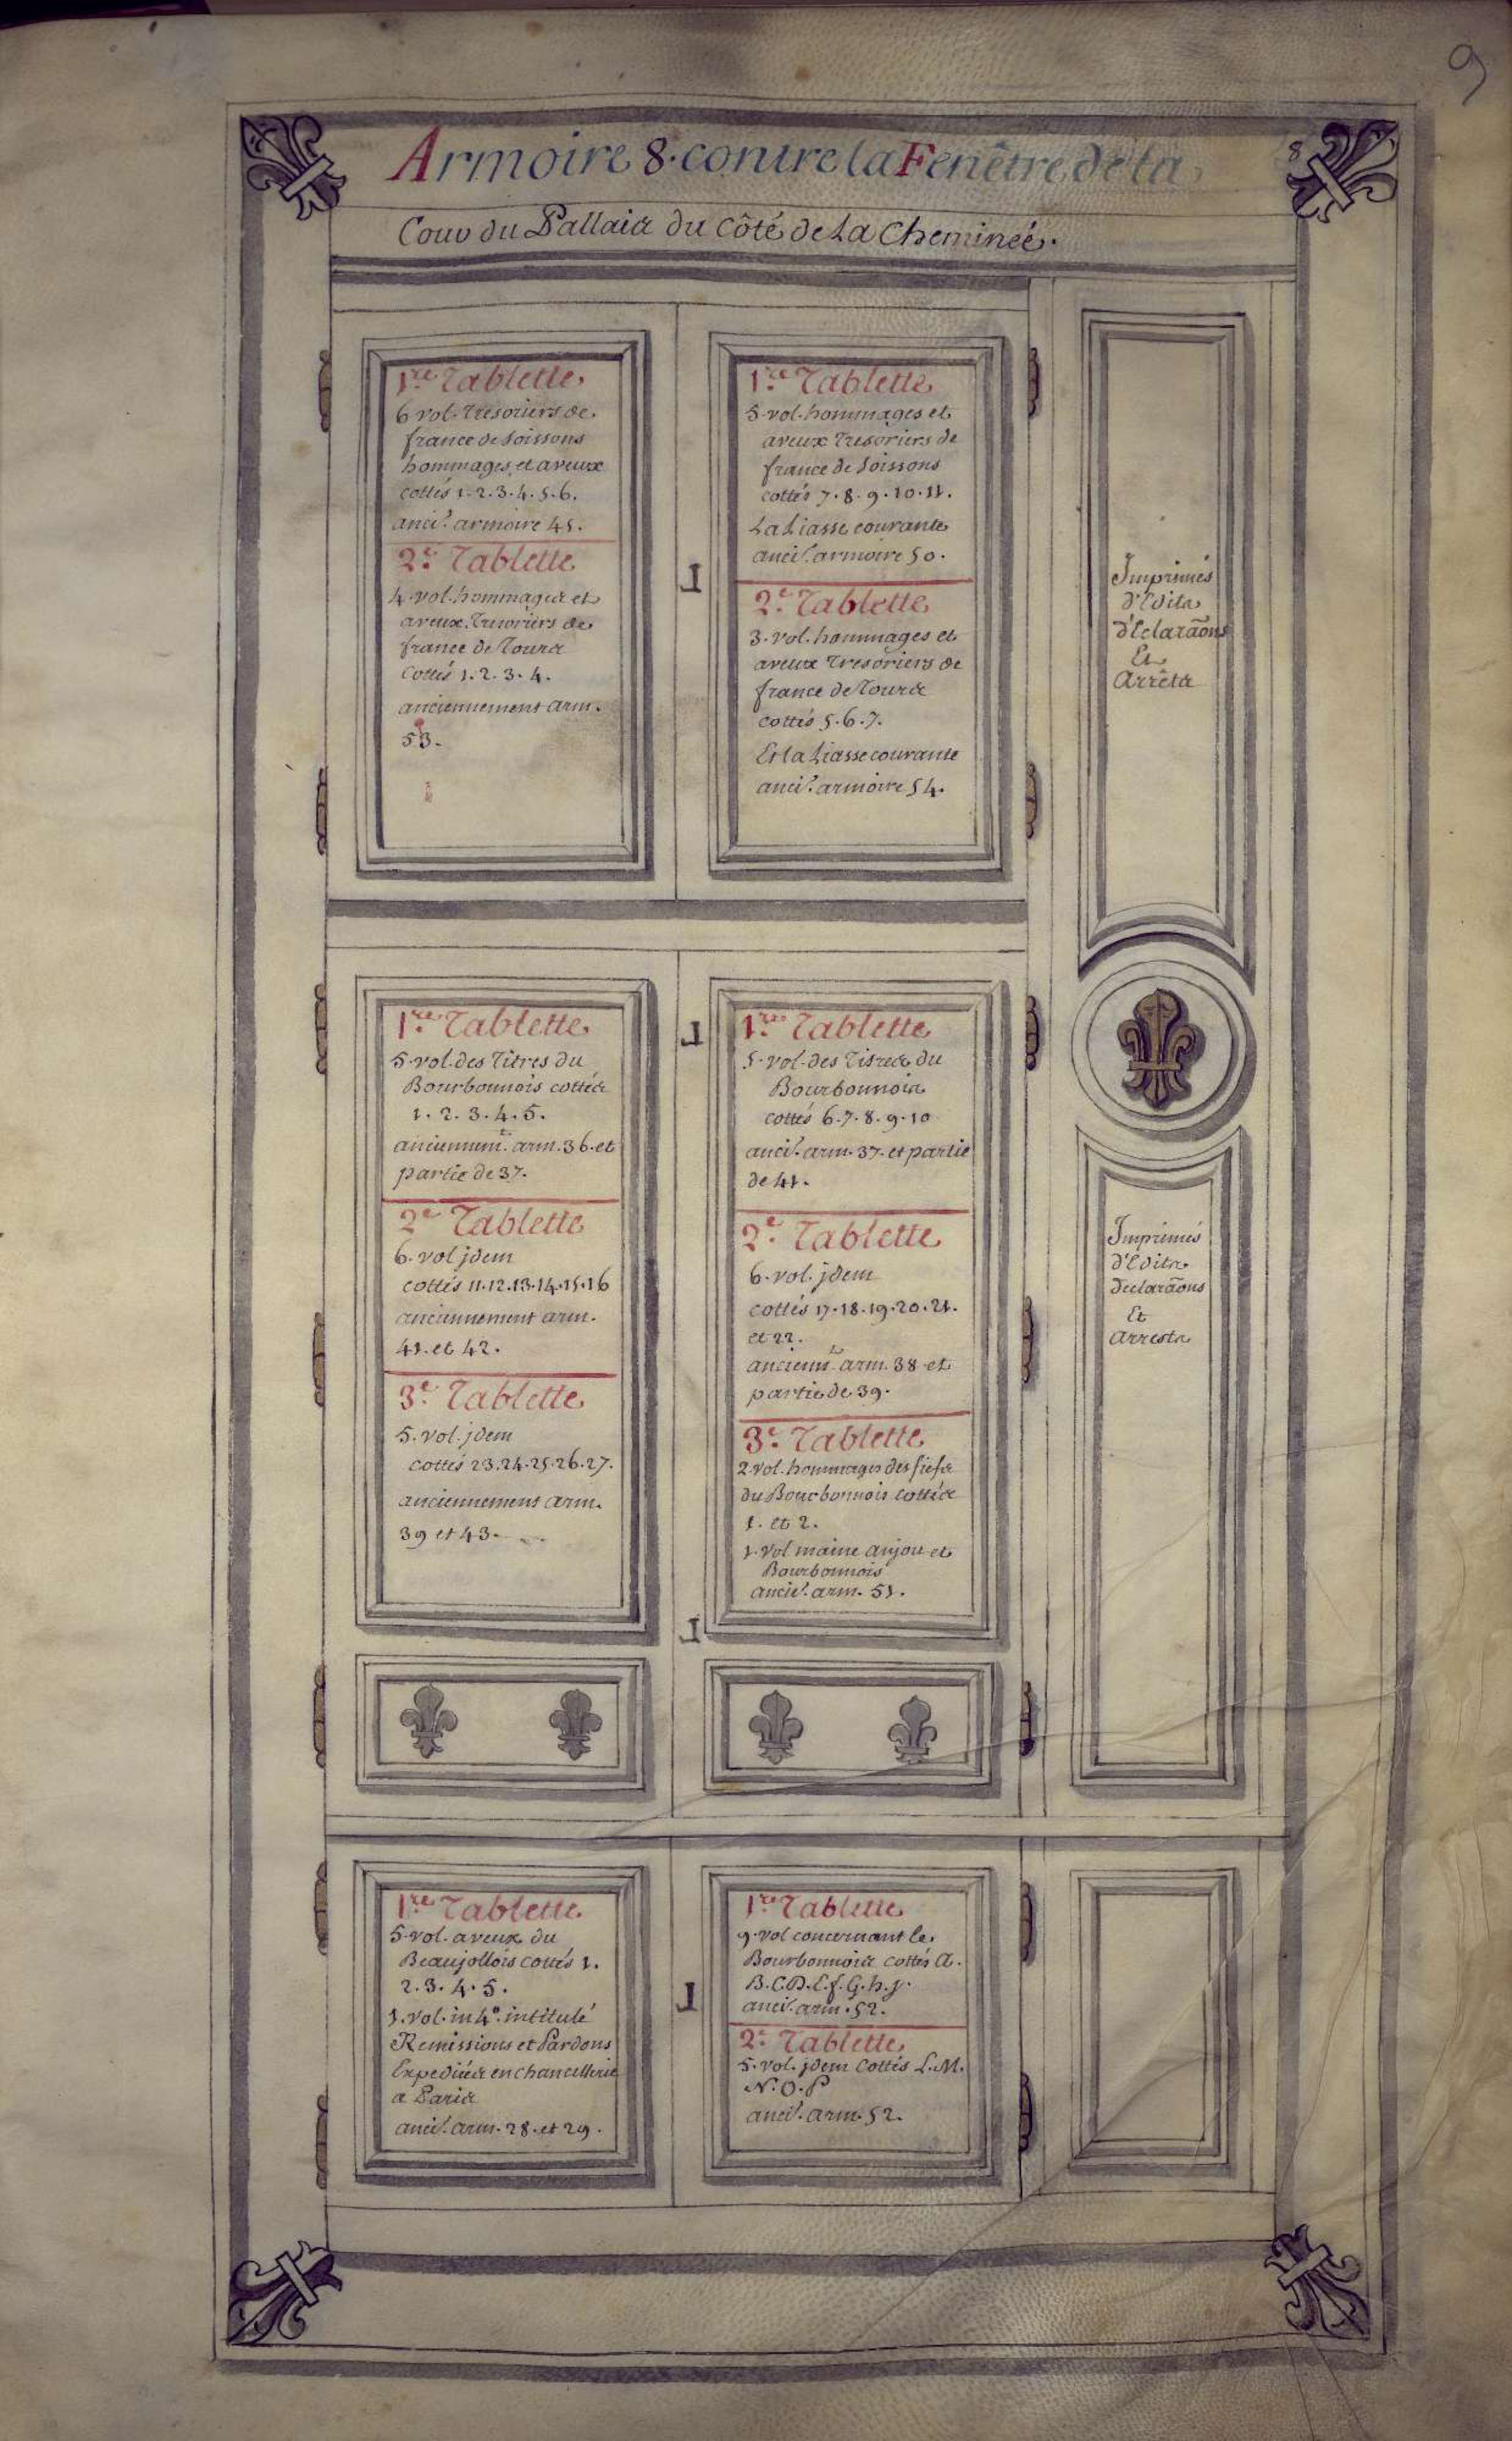 9
8
Armoire 8. contre la Fenêtre de la
Cour du Pallais du Côté de La Cheminée.
1.re Tablette
6 vol. Tresoriers de
france de Soissons
hommages et aveux
cottés 1.2.3.4.5.6.
anci.t armoire 45.
2.e Tablette
4. vol. hommages et
aveux Tresoriers de
france de Tours
Cottés 1.2.3.4.
anciennement arm.
53.
1.re Tablette
5. vol. hommages et
aveux Tresoriers de
france de Soissons
cottés 7.8.9.10.11.
La Liasse courante
anci.t armoire 50.
2.e Tablette
3. vol. hommages et
aveux Tresoriers de
france de Tours
cottés 5.6.7.
Et la Liasse courante
anci.t armoire 54.
Imprimés
d'Edits
d'Eclaraõns
Et
Arrêts
1.re Tablette
5. vol. des Titres du
Bourbonnois cottés
1.2.3.4.5.
anciennem.t arm. 36. et
partie de 37.
2.e Tablette
6. vol jdem
cottés 11.12.13.14.15.16
anciennement arm.
41. et 42.
3.e Tablette
5. vol. jdem
cottés 23.24.25.26.27.
anciennement arm.
39 et 43.
1.re Tablette
5. vol. des Titres du
Bourbonnois
cottés 6.7.8.9.10
anci.t arm. 37. et partie
de 41.
2.e Tablette
6. vol. jdem
cottés 17.18.19.20.21.
et 22.
ancienn.t arm. 38 et
partie de 39.
3.e Tablette
2. vol. hommages des fiefs
du Bourbonnois cottés
1. et 2.
1. vol maine anjou et
Bourbonnois
anci.t arm. 51.
Imprimés
d'Edits
declaraõns
Et
arrests
1.re Tablette
5. vol. aveux du
Beaujollois cottés 1.
2.3.4.5.
1. vol. in 4.º intitulé
Remissions et Pardons
Expediées en chancellerie
a Paris
anci.t arm. 28. et 29.
1.re Tablette
9. vol concernant le
Bourbonnois cottés A.
B.C.D.E.f.G.h.j.
anci.t arm. 52.
2.e Tablette
5. vol. jdem Cottés L.M.
N.O.P
anci.t arm. 52.